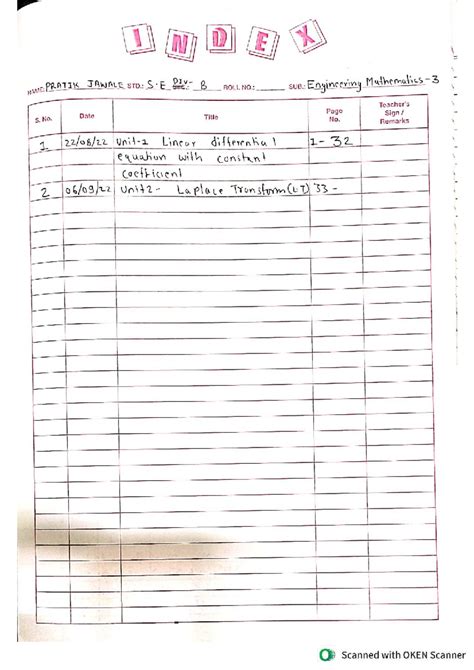 INDEX
NAME: PRATIK JAWALE STD.: S.E DIV:- B ROLL NO.: SUB.: Engineering Mathematics-3
S. No. Date Title Page No. Teacher's Sign / Remarks
1 22/08/22 Unit-1 Linear differential 1- 32
equation with constant
coefficient
2 06/09/22 Unit2- Laplace Transform(LT) 33-
Scanned with OKEN Scanner